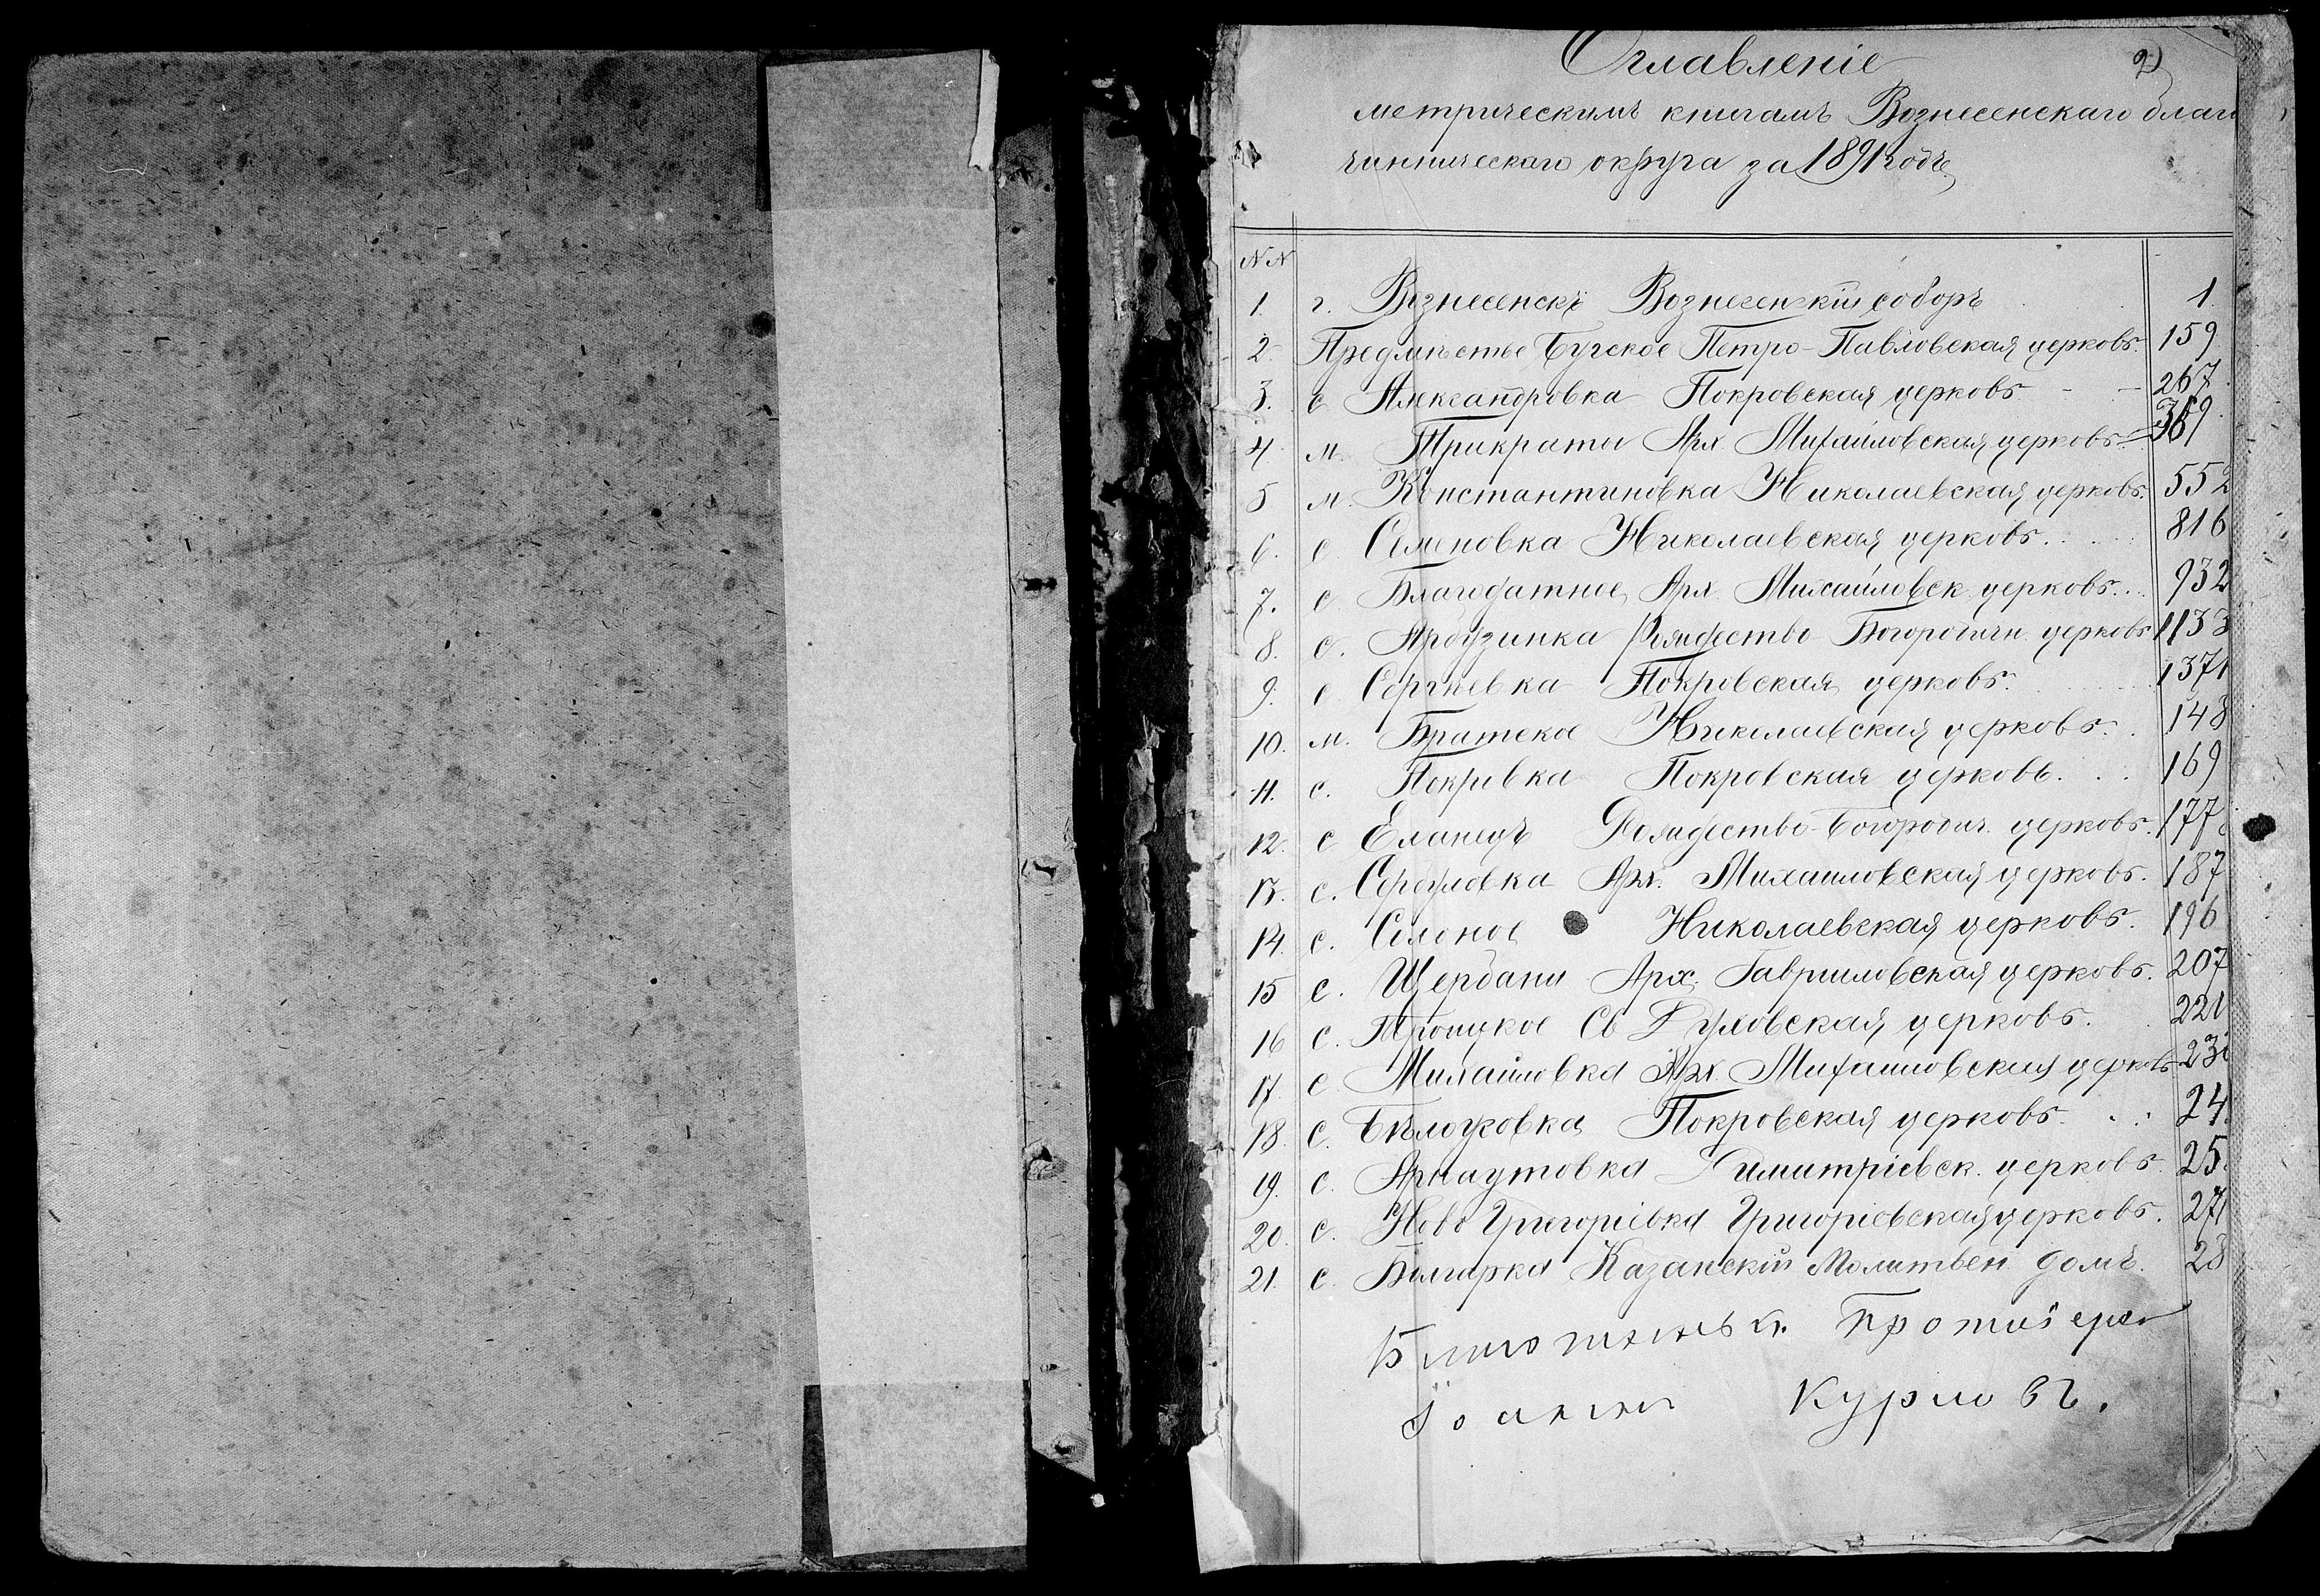 Оглавленіе 2
метрическимъ книгамъ Вознесенскаго благо
чинническаго округа за 1891 годъ
NN
1. г. Вознесенскъ Вознесенскій соборъ 1
2. Предмѣстье Бугское Петро-Павловская церковь. 159
3. с Александровка Покровская церковь - - 267
4 м. Трикраты Арх. Михайловская церковь
5 м. Константиновка Николаевская церковь. 552
6. с Семеновка Николаевская церковь. . . . 816
7. с Благодатное Арх. Михайловск. церковь. . . 932
8. с. Арбузинка Рождество Богородичн церковь 1133
9. с Сергеевка Покровская церковь. 1371
10. м. Братское Николаевская церковь. . 148
11. с. Покровка Покровская церковь. . . 169
12. с Еланецъ Рождество-Богородич. церковь. 177
13. с. Арх. Михаиловская церковь. 187
14. с. Соленое Николаевская церковь. 196
15 с. Щербани Арх. Гавриловская церковь. 207
16 с. Троицкое Св Духовская церковь. 221
17. с Михайловка Арх. Михаиловская церковь 23
18. с. Бѣлоусовка Покровская церковь. . . 24
19. с. Арнаутовка Димитріевск. церковь. 25
20. с. Ново Григоріевка Григоріевская церковь. 271
21. с. Болгарка Казанскій Молитвен домъ. 28
Благочинный Протоіерей
Іоаннъ Курловъ.